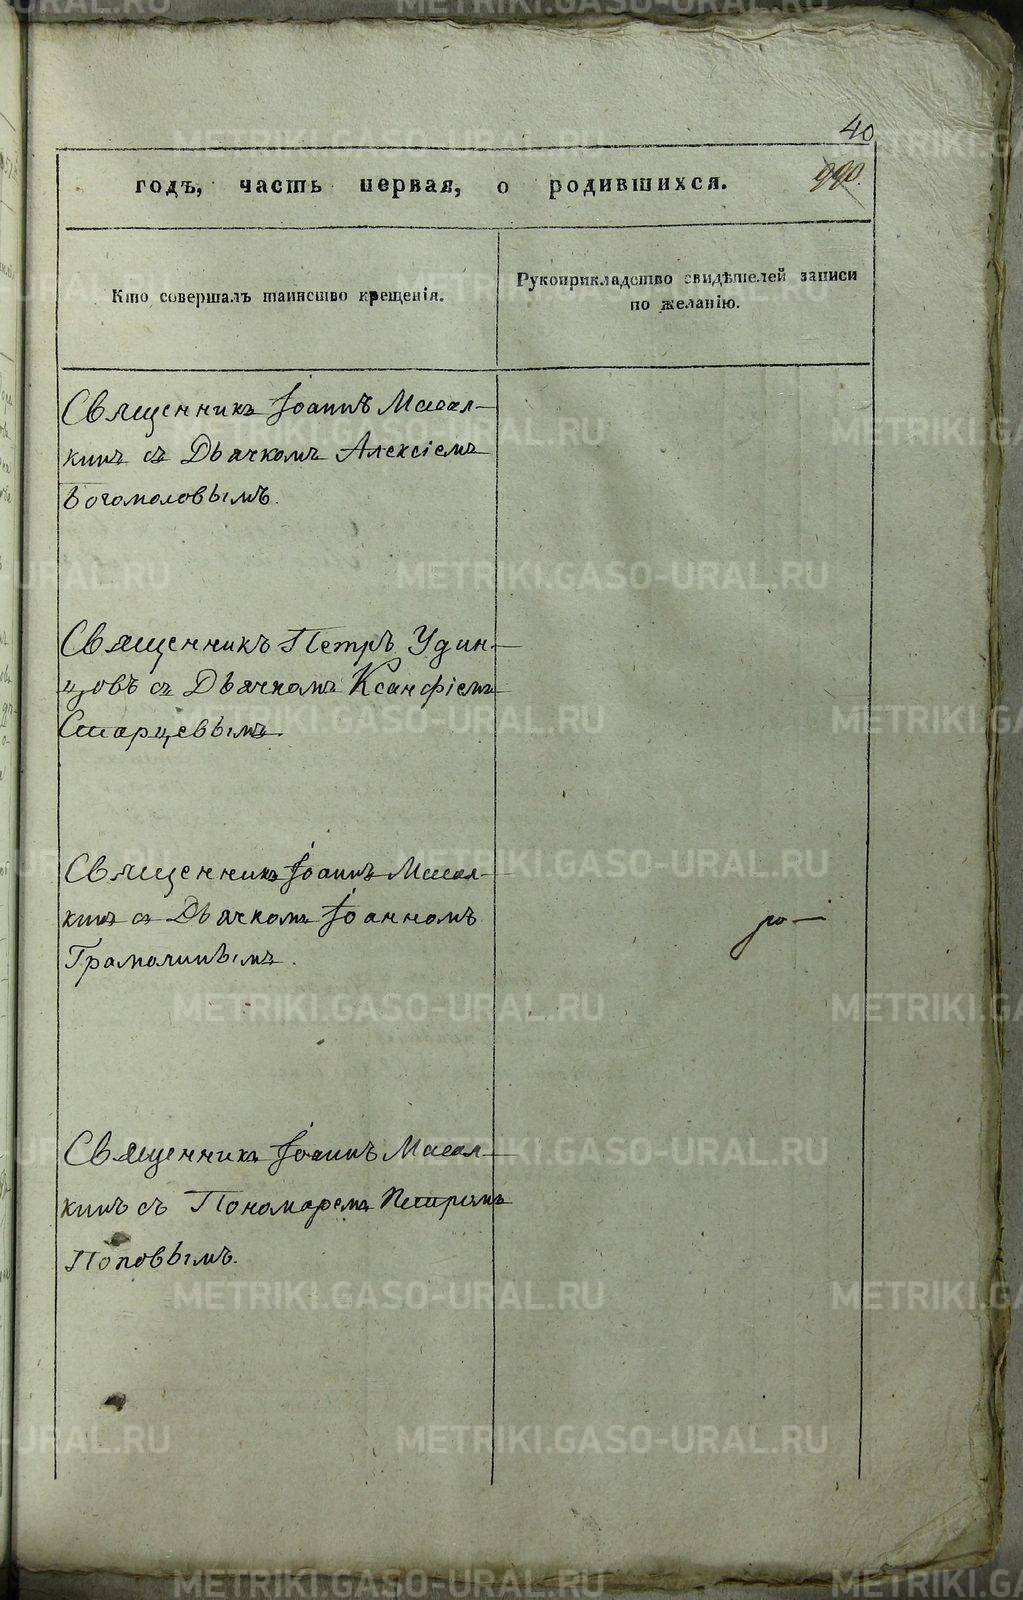 40
годъ, часть первая, о родившихся.
990.
Кто совершалъ таинство крещенія.
Рукоприкладство свидѣтелей записи
по желанію.
Священникъ Іоаннъ Масал-
кинъ съ Дьячкомъ Алексіемъ
Богомоловымъ.
Священникъ Петръ Удин-
цовъ съ Дьячкомъ Ксанфіемъ
Старцевымъ.
Священникъ Іоаннъ Масал-
кинъ съ Дьячкомъ Іоанномъ
Грамолинымъ.
Священникъ Іоаннъ Масал-
кинъ съ Пономаремъ Петромъ
Поповымъ.
METRIKI.GASO-URAL.RU